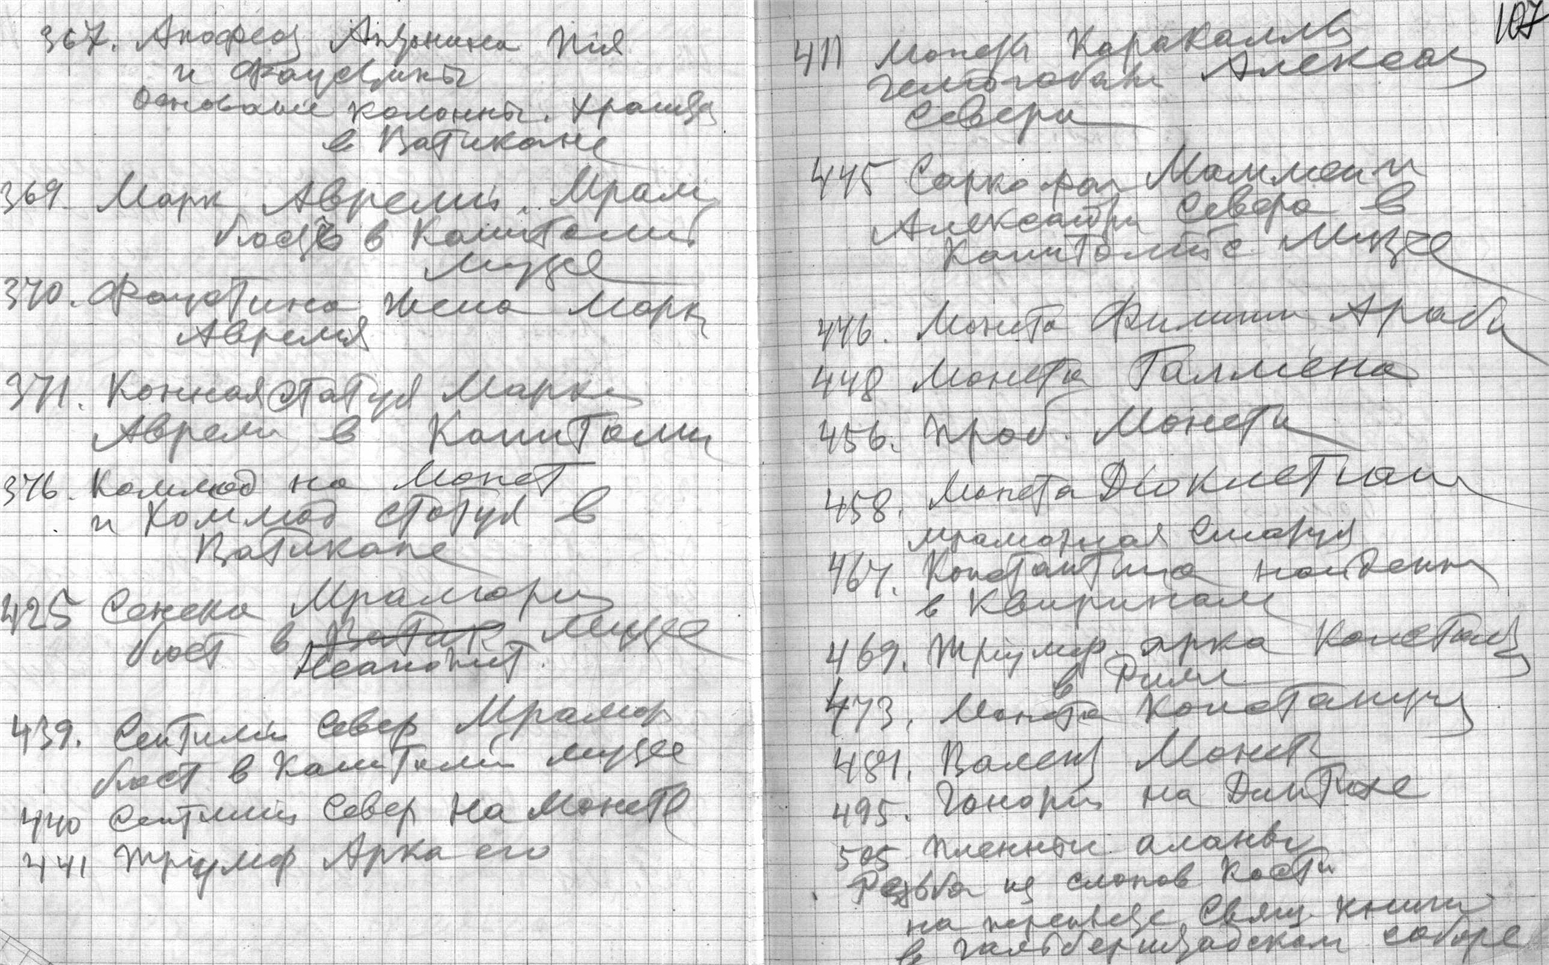 367. Апофеоз Антонина Пія
и Фаустины
Основание колонны. Храмца
в Ватикане
369. Марк Аврелий. Мрам
бюст в Капитолий
Музее
370. Фаустина жена Марк
Аврелия
371. Конная статуя Марка
Аврели в Капитолии
376. Коммод на монет
и Коммод статуя в
Ватикане
425 Сенека Мрамор
бюст в Музее
Неаполит.
439. Септимий Север Мрамор
бюст в Капитолий музее
440 Септимий Север на монете
441 Тріумф Арка его
107
411 Монеты Каракаллы
Александ
Севера
445 Саркофаг Маммеи и
Александра Севера в
Капитолийс Музее
446. Монета Филипп Араба
448 Монета Галлиена
456. Проб. Монета
458. Монета Діоклетиан
мраморная статуя
467. Константина найденн
в Квиринале
469. Тріумф. арка Констанц
в Риме
473. Монета Констанция
481. Валенс Монета
495. Гонорий на Диптихе
505 Пленные аланы
Резьба из слонов кости
на переплете Свящ книги
в Гальберштадском соборе